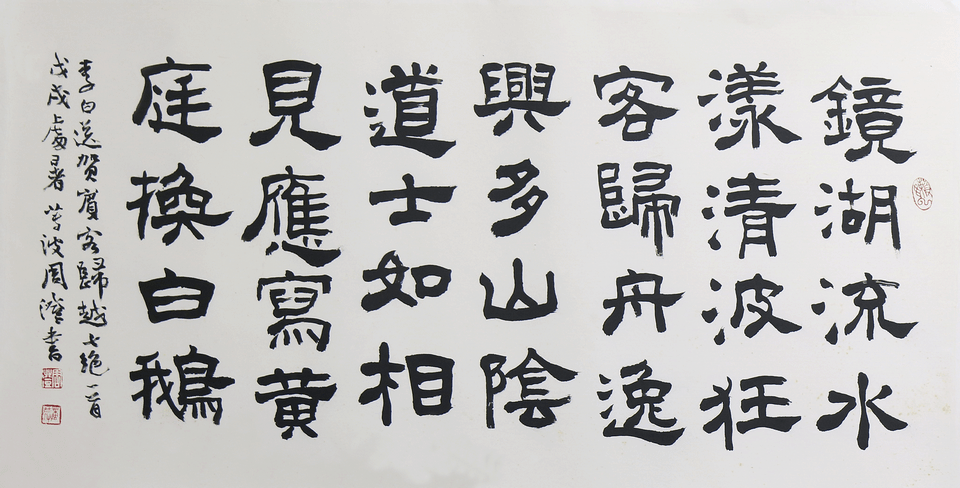 鏡湖流水
漾清波狂
客歸舟逸
興多山陰
道士如相
見應寫黄
庭換白鵝
李白送贺賓客歸越七绝一首
戊戌處暑 波周 書